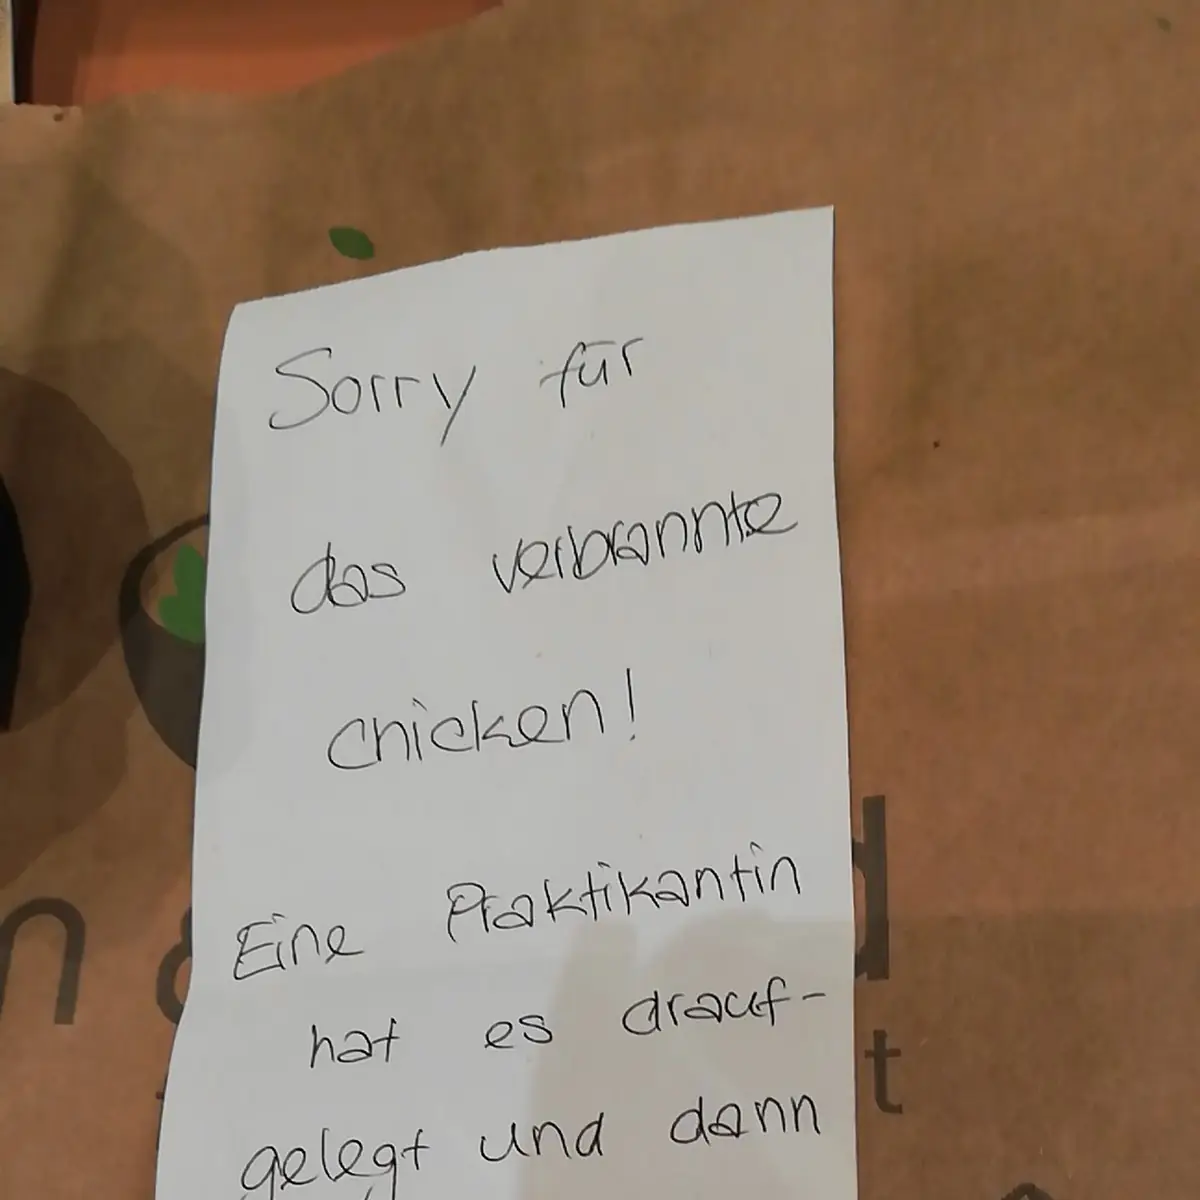 Sorry für
das verbrannte
chicken!
Eine Praktikantin
hat es drauf-
gelegt und dann